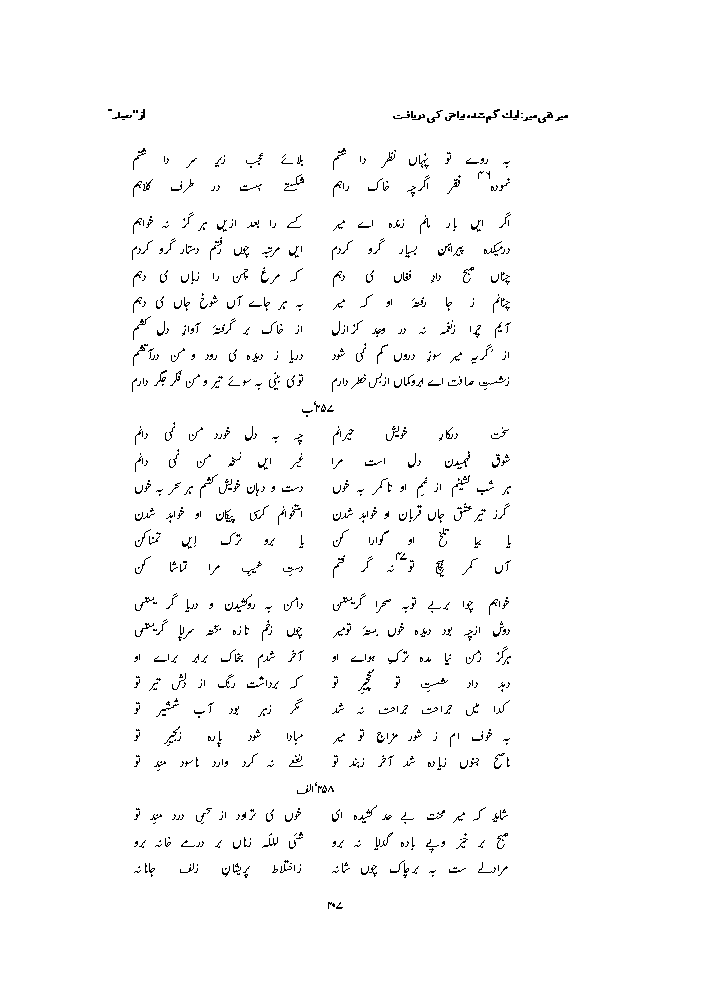 میر تقی میر: ایک گم شدہ بیاض کی دریافت از "معیار"
بہ روے تو پنہاں نظر دا شتم بلائے عجب زیر سر دا شتم
نمودہ۴۶ فقر اگرچہ خاک راہم شکستے ہست در طرف کلاہم
اگر ایں بار مانم زندہ اے میر کسے را بعد ازیں ہر گز نہ خواہم
درمیکدہ پیراہن بسیار گرو کردم ایں مرتبہ چوں رفتم دستار گرو کردم
چناں صبح داد فغاں می دہم کہ مرغ چمن را زباں می دہم
چنانم ز جا رفتۂ او کہ میر بہ ہر جاے آں شوخ جاں می دہم
آیم چرا زنغمہ نہ در وجد کز ازل از خاک بر گرفتۂ آواز دل کشم
از گریہ میر سوز دروں کم نمی شود دریا ز دیدہ می رود و من درآتشم
زشست صافت اے ابروکماں ازبس خطر دارم توی بینی بہ سوئے تیر و من فکر جگر دارم
۲۵۷/ب
سخت درکار خویش حیرانم چہ بہ دل خورد من نمی دانم
شوق فہمیدن دل است مرا غیر ایں نسخہ من نمی دانم
ہر شب نشینم از غم او تا کمر بہ خوں دست و دہان خویش کشم ہر سحر بہ خوں
گرز تیر عشق جاں قربان او خواہد شدن استخوانم کرسی پیکان او خواہد شدن
یا بیا تلخ او گوارا کن یا برو ترک ایں تمنا کن
آں کمر ہیچ تو۴۷ نہ گر فتم دست غیب مرا تماشا کن
خواہم چوا بربے توبہ صحرا گریستنی دامن بہ روکشیدن و دریا گر یستنی
دوش ازچہ بود دیدہ خوں بستۂ تومیر چوں زخم تازہ بختہ سراپا گریستنی
ہرگز زمن نیا مدہ ترک ہواے او آخر شدم بخاک برابر براے او
دہد داد شست تو نخچیر تو کہ برداشت رنگ از دلش تیر تو
کدا میں جراحت جراحت نہ شد مگر زہر بود آب شمشیر تو
بہ خوف ام ز شور مزاج تو میر مبادا شود پارہ زنجیر تو
ناصح جنوں زیادہ شد آخر زپند تو نفعے نہ کرد وارد ناسود مند تو
۲۵۸/الف
شاید کہ میر محنت بے حد کشیدہ ای خوں می تراود از سخن درد مند تو
صبح بر خیز وپے بادہ گدایا نہ برو شئی للہ زناں بر درے خانہ برو
مرادلے ست بہ برچاک چوں شانہ زاختلاط پریشان زلف جانانہ
۲۰۷